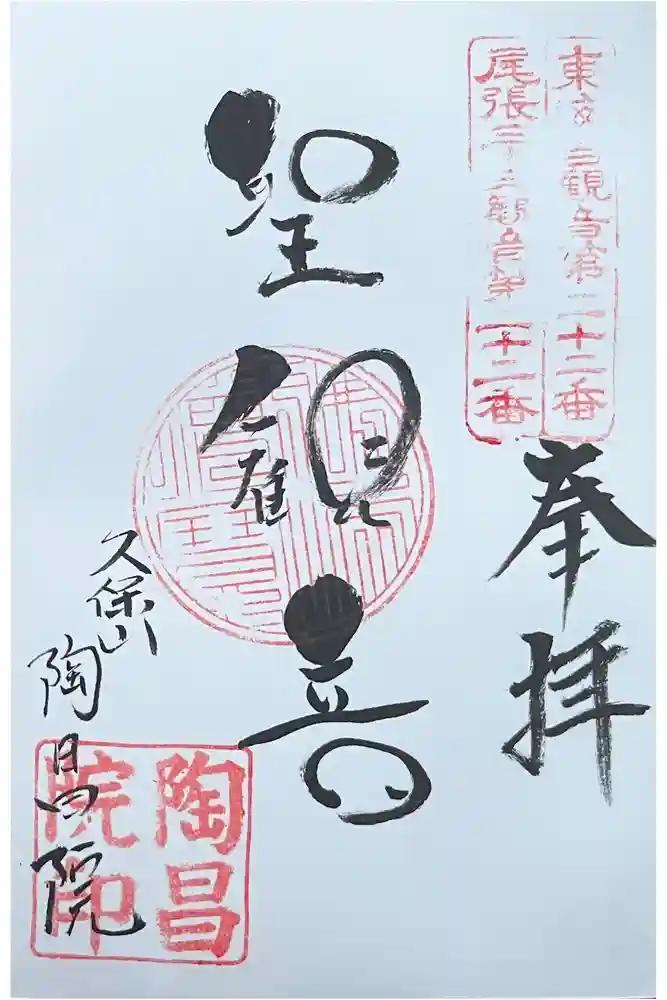 東海三十三観音第二十二番
尾張三十三観音第二十二番
奉拝
聖観音
久保山
陶昌院
陶昌院印